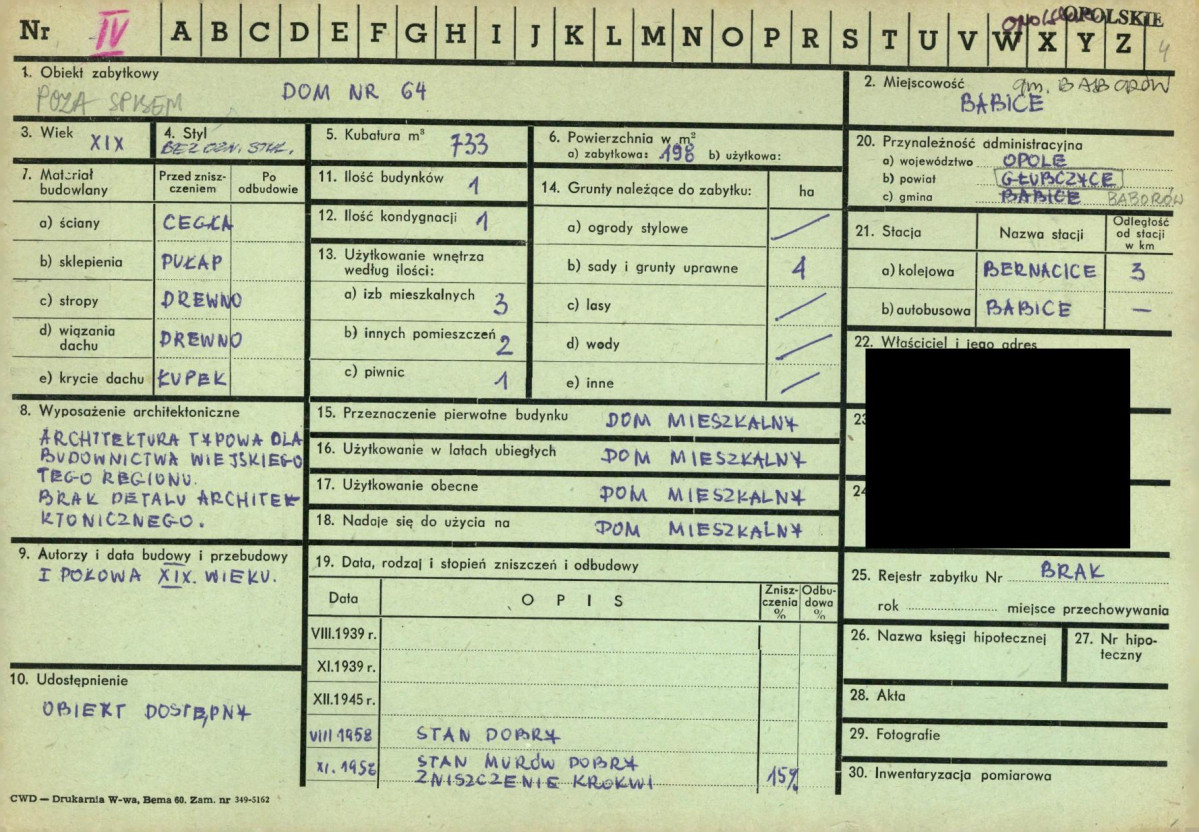 Nr IV A B C D E F G H I J K L M N O P R S T U V W X Y Z
OPOLSKIE
4
1. Obiekt zabytkowy
POZA SPISEM
DOM NR 64
2. Miejscowość
gm. BABORÓW
BABICE
3. Wiek XIX
4. Styl
5. Kubatura m³ 733
6. Powierzchnia w m²
a) zabytkowa: 198 b) użytkowa:
7. Materiał budowlany
Przed znisz-
czeniem
Po
odbudowie
a) ściany CEGŁA
b) sklepienia PUŁAP
c) stropy DREWNO
d) wiązania
dachu DREWNO
e) krycie dachu ŁUPEK
11. Ilość budynków 1
12. Ilość kondygnacji 1
13. Użytkowanie wnętrza
według ilości:
a) izb mieszkalnych 3
b) innych pomieszczeń 2
c) piwnic 1
14. Grunty należące do zabytku: ha
a) ogrody stylowe /
b) sady i grunty uprawne 4
c) lasy /
d) wody /
e) inne /
20. Przynależność administracyjna
a) województwo OPOLE
b) powiat GŁUBCZYCE
c) gmina BABICE BABORÓW
21. Stacja
Nazwa stacji
Odległość
od stacji
w km
a) kolejowa BERNACICE 3
b) autobusowa BABICE —
22. Właściciel i jego adres
23
24
8. Wyposażenie architektoniczne
ARCHITEKTURA TYPOWA DLA
BUDOWNICTWA WIEJSKIEGO
TEGO REGIONU.
BRAK DETALU ARCHITEK
KTONICZNEGO.
15. Przeznaczenie pierwotne budynku DOM MIESZKALNY
16. Użytkowanie w latach ubiegłych DOM MIESZKALNY
17. Użytkowanie obecne DOM MIESZKALNY
18. Nadaje się do użycia na DOM MIESZKALNY
9. Autorzy i data budowy i przebudowy
I POŁOWA XIX. WIEKU.
10. Udostępnienie
OBIEKT DOSTĘPNY
19. Data, rodzaj i stopień zniszczeń i odbudowy
Data
OPIS
Znisz-
czenia
%
Odbu-
dowa
%
VIII.1939 r.
XI.1939 r.
XII.1945 r.
VIII 1958 STAN DOBRY
XI.1958 STAN MURÓW DOBRY
ZNISZCZENIE KROKWI 15%
25. Rejestr zabytku Nr BRAK
rok miejsce przechowywania
26. Nazwa księgi hipotecznej
27. Nr hipo-
teczny
28. Akta
29. Fotografie
30. Inwentaryzacja pomiarowa
CWD — Drukarnia W-wa, Bema 60. Zam. nr 349-5162